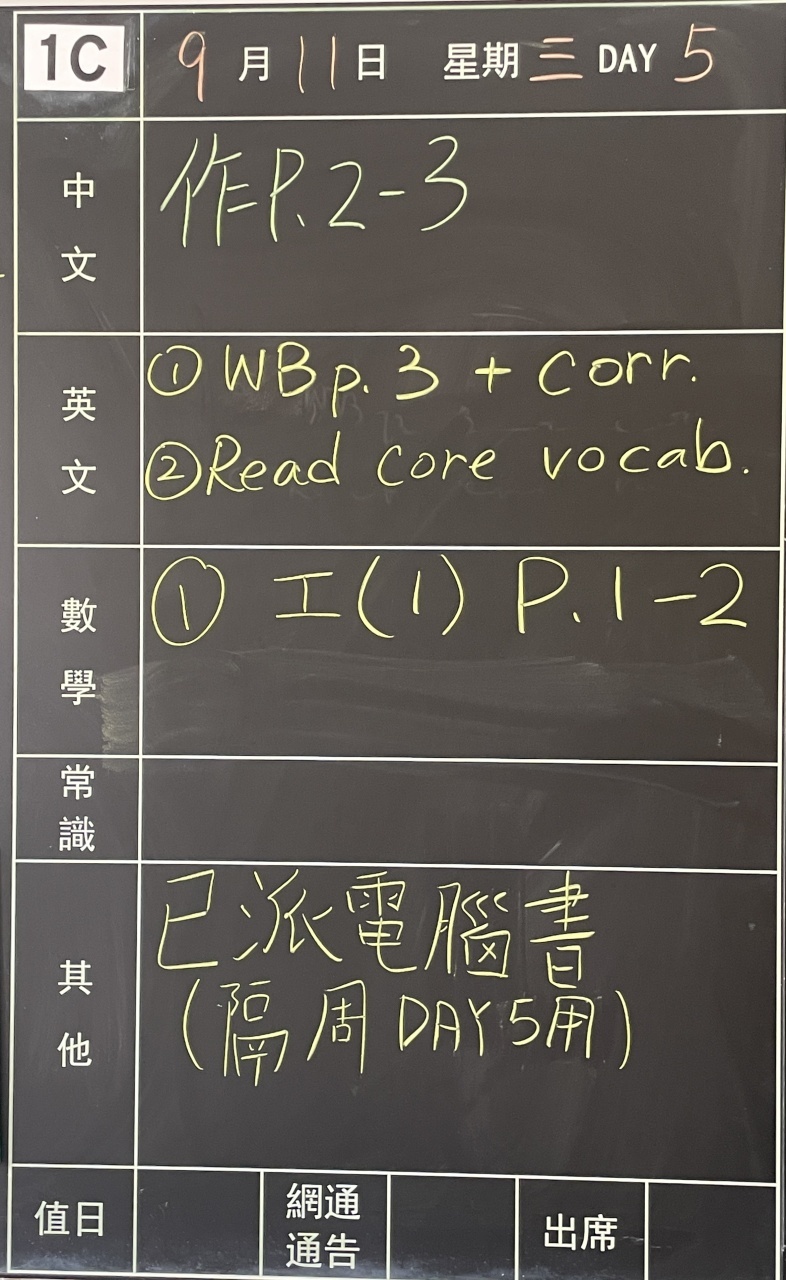 1C 9月11日 星期三 DAY 5
中文 作P.2-3
英文 ①WB p.3 + corr.
②Read core vocab.
數學 ① 工(1) P.1-2
常識
其他 已派電腦書
(隔周DAY5用)
值日 網通通告 出席